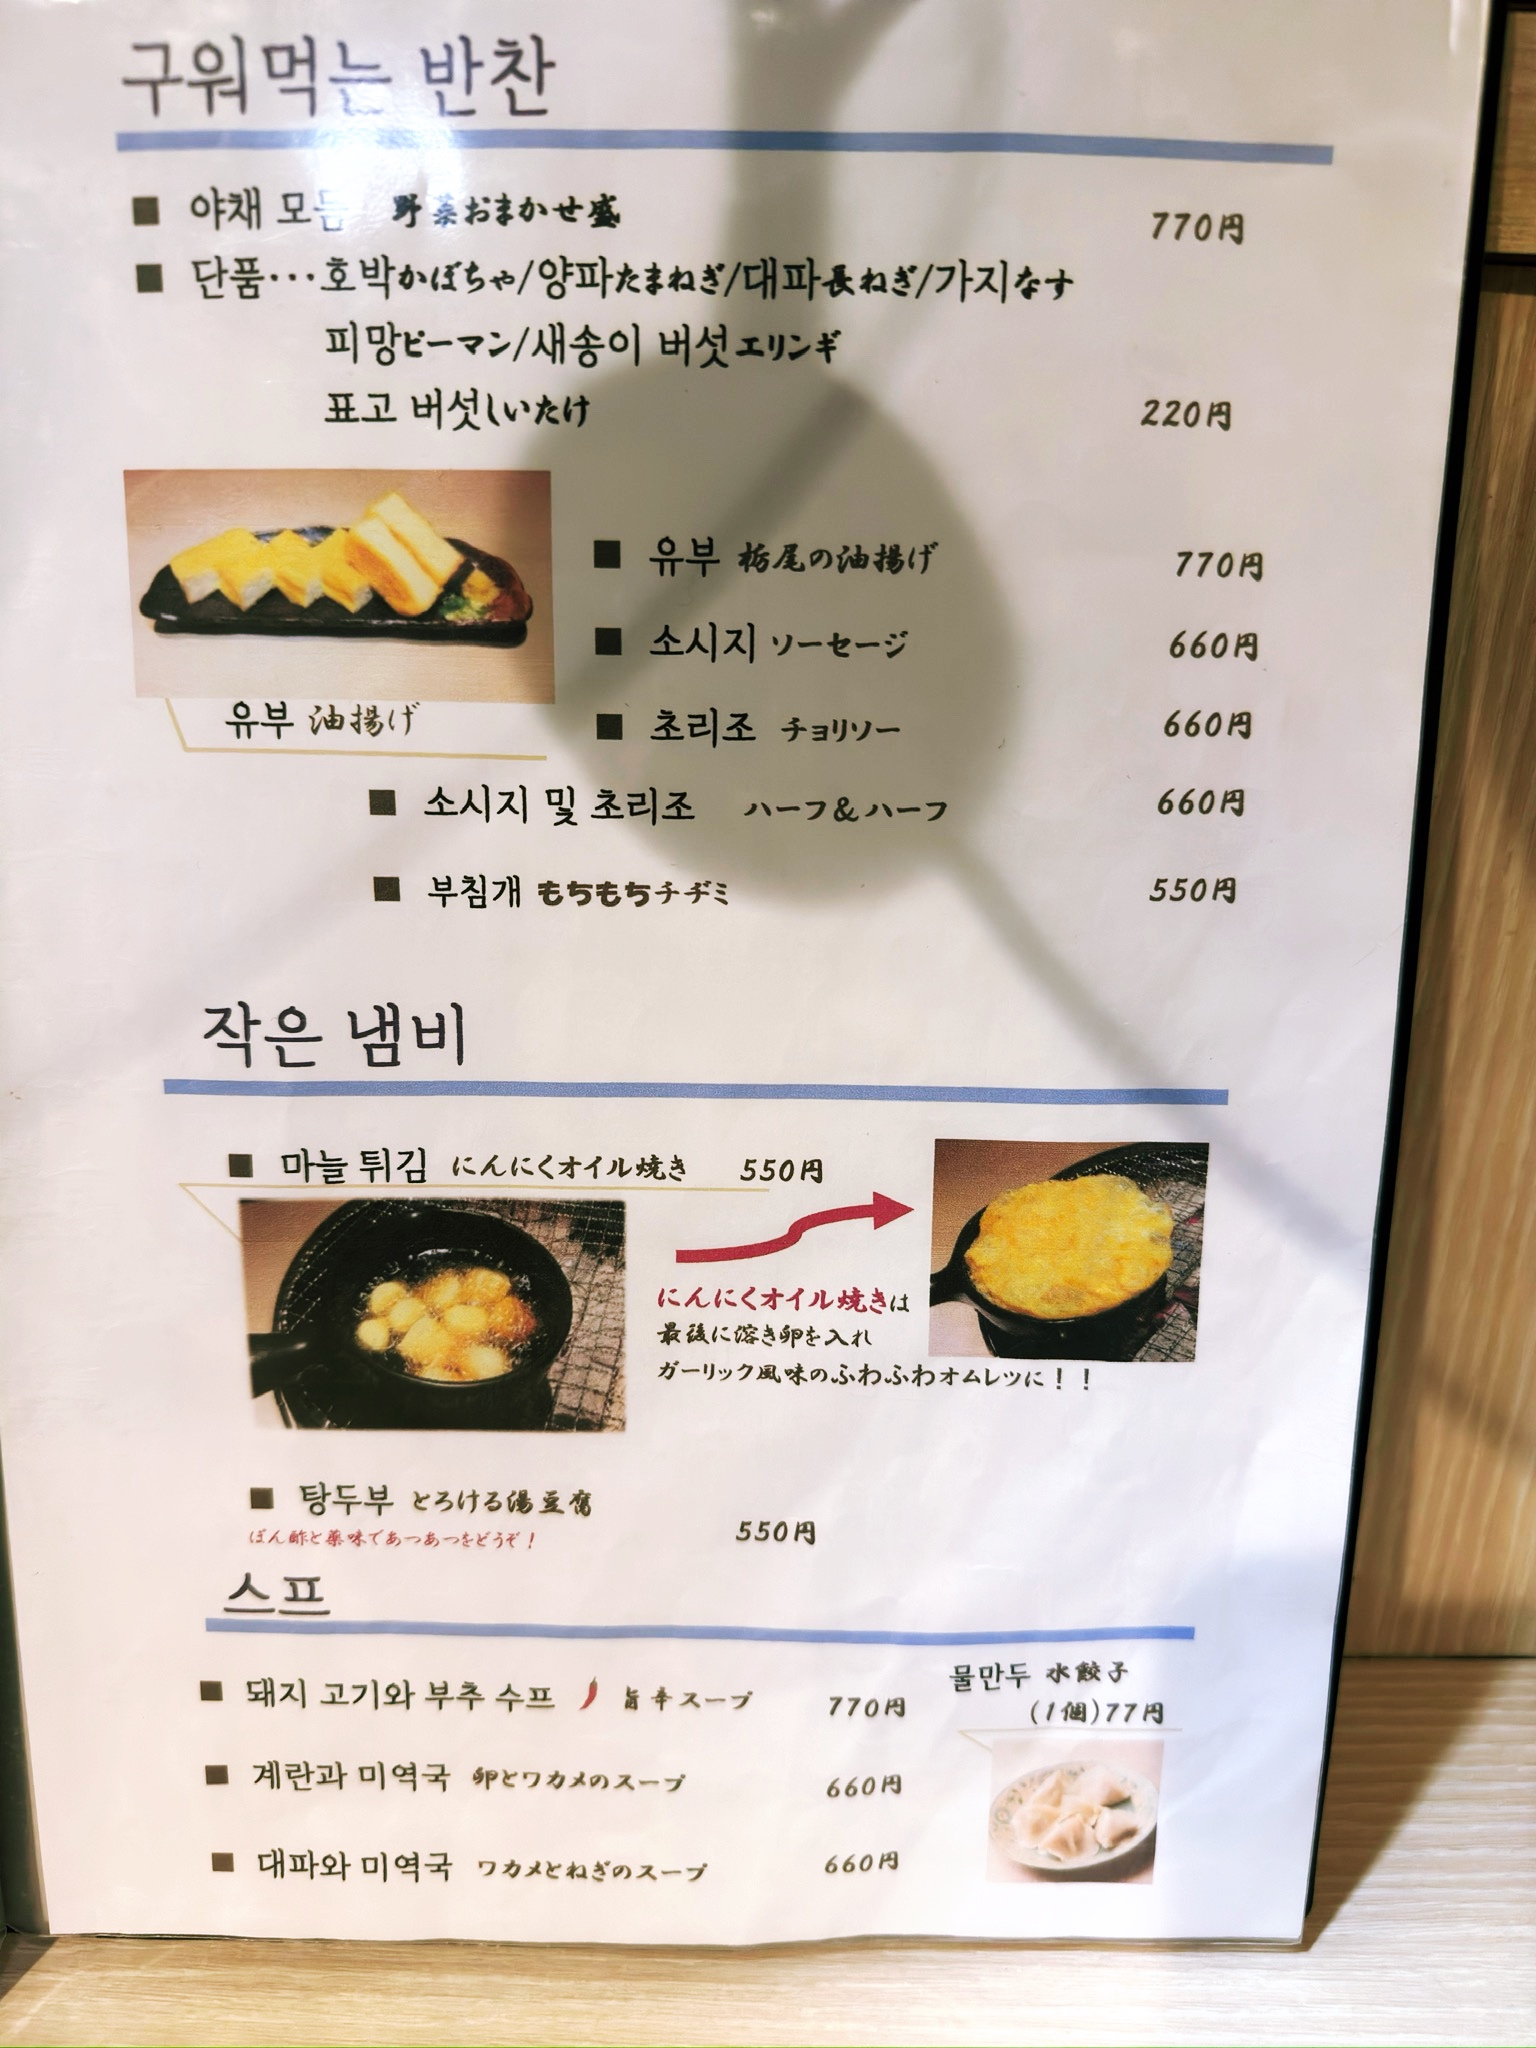 구워먹는 반찬
■ 야채 모듬 野菜おまかせ盛 770円
■ 단품･･･호박かぼちゃ/양파たまねぎ/대파長ねぎ/가지なす
피망ピーマン/새송이 버섯エリンギ
표고 버섯しいたけ 220円
■ 유부 栃尾の油揚げ 770円
■ 소시지 ソーセージ 660円
유부 油揚げ
■ 초리조 チョリソー 660円
■ 소시지 및 초리조 ハーフ&ハーフ 660円
■ 부침개 もちもちチヂミ 550円
작은 냄비
■ 마늘 튀김 にんにくオイル焼き 550円
にんにくオイル焼きは
最後に溶き卵を入れ
ガーリック風味のふわふわオムレツに！！
■ 탕두부 とろける湯豆腐 550円
ぽん酢と薬味であつあつをどうぞ！
스프
■ 돼지 고기와 부추 수프 旨辛スープ 770円
물만두 水餃子
(1個)77円
■ 계란과 미역국 卵とワカメのスープ 660円
■ 대파와 미역국 ワカメとねぎのスープ 660円